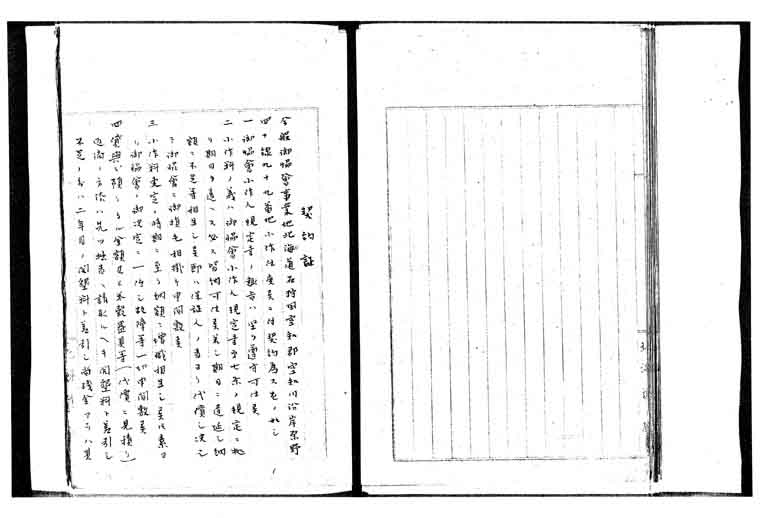 契約証
今般御協會事業地北海道石狩国空知郡空知川沿岸原野
四十線九十九番地小作仕度候ニ付契約為スモノ也
一御協會小作人規定書ノ趣旨ハ堅ク遵守可仕候
二小作料ノ義ハ御協會小作人規定書第七条ノ規定ニ
リ期日ヲ違ヘス必ス皆納可仕候若シ期日ニ遅延シ納
額ニ不足等相生シ候節ハ保証人ノ者ヨリ代償シ決シ
テ御協會ニ御損毛相掛ケ申間敷候
三小作料更定ノ時期ニ至リ納額ニ増減相生シ候共素ヨ
リ御協會ノ御決定ニ一任シ故障等一切申間敷候
四貸與ヲ預リタル金額及ヒ米穀農具等(代償ニ見積リ)
返済ノ方法ハ先ツ拙者ヘ請取ルヘキ開墾料ト差引シ
不足ノ分ハ二年目ノ開墾料ト差引シ尚残金アラハ其